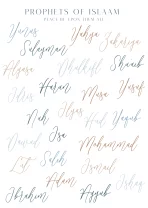 PROPHETS OF ISLAAM
PEACE BE UPON THEM ALL
Yunus Yahya Zakariya
Sulayman Shuaib
Alyasa Dhulkifl
Idris Haron Musa Yusuf
Nuh Ilyas Hud Yaqub
Dawud Isa Muhammad
Lut Salih Ismail
Adam Ishaq
Ibrahim Ayyub